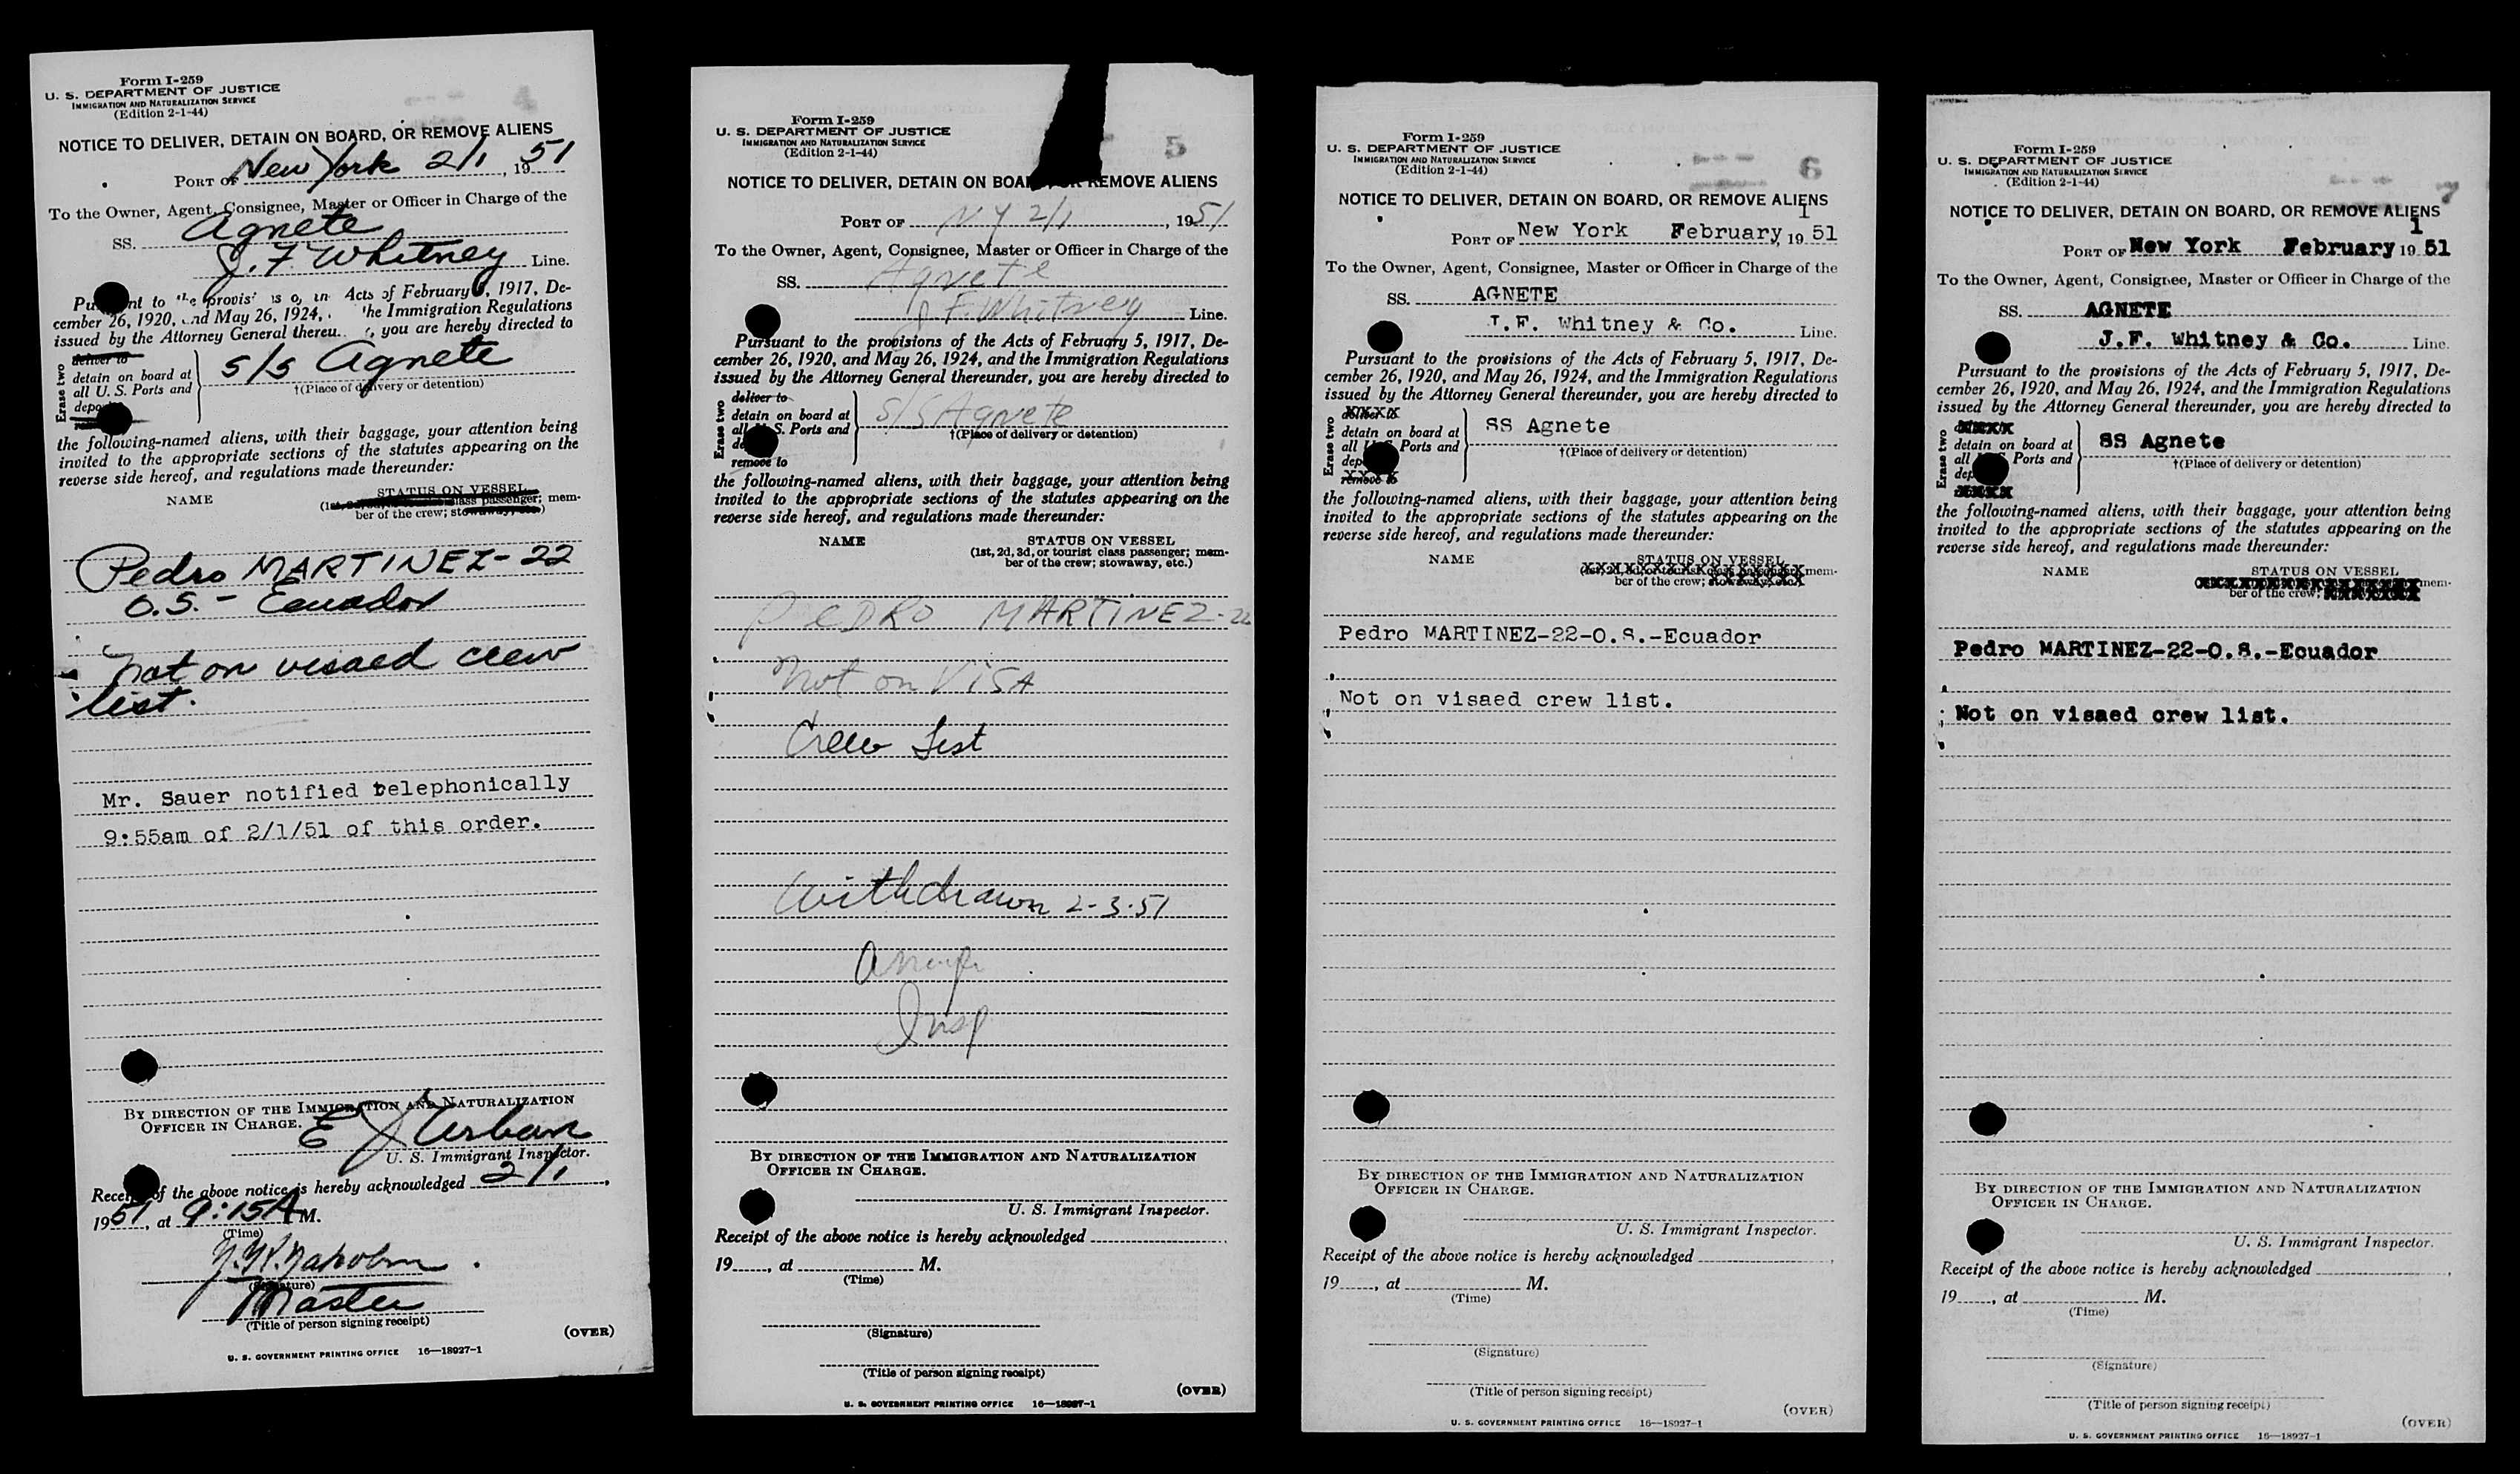 Form I-259
U. S. DEPARTMENT OF JUSTICE
IMMIGRATION AND NATURALIZATION SERVICE
(Edition 2-1-44)
4
NOTICE TO DELIVER, DETAIN ON BOARD, OR REMOVE ALIENS
PORT OF New York 2/1, 1951
To the Owner, Agent, Consignee, Master or Officer in Charge of the
SS. Agnete
J. F. Whitney Line.
Pu nt to the provis ns o Acts of February 5, 1917, De-
cember 26, 1920, and May 26, 1924, the Immigration Regulations
issued by the Attorney General thereu , you are hereby directed to
Erase two
deliver to
detain on board at
all U. S. Ports and
depo
S/S Agnete
†(Place of delivery or detention)
the following-named aliens, with their baggage, your attention being
invited to the appropriate sections of the statutes appearing on the
reverse side hereof, and regulations made thereunder:
NAME STATUS ON VESSEL
(1st, 2d, 3d, or tourist class passenger; mem-
ber of the crew; stowaway, etc.)
Pedro MARTINEZ-22
O.S. - Ecuador
not on visaed crew
list.
Mr. Sauer notified telephonically
9:55am of 2/1/51 of this order.
BY DIRECTION OF THE IMMIGRATION AND NATURALIZATION
OFFICER IN CHARGE.
E J Urban
U. S. Immigrant Inspector.
Receipt of the above notice is hereby acknowledged 2/1,
1951, at 9:15A M.
(Time)
(Signature)
Master
(Title of person signing receipt)
(OVER)
U. S. GOVERNMENT PRINTING OFFICE 16—18927-1
Form I-259
U. S. DEPARTMENT OF JUSTICE
IMMIGRATION AND NATURALIZATION SERVICE
(Edition 2-1-44)
5
NOTICE TO DELIVER, DETAIN ON BOA OR REMOVE ALIENS
PORT OF NY 2/1, 1951
To the Owner, Agent, Consignee, Master or Officer in Charge of the
SS. Agnete
J F. Whitney Line.
Pursuant to the provisions of the Acts of February 5, 1917, De-
cember 26, 1920, and May 26, 1924, and the Immigration Regulations
issued by the Attorney General thereunder, you are hereby directed to
Erase two
deliver to
detain on board at
all U. S. Ports and
de
remove to
S/S Agnete
†(Place of delivery or detention)
the following-named aliens, with their baggage, your attention being
invited to the appropriate sections of the statutes appearing on the
reverse side hereof, and regulations made thereunder:
NAME STATUS ON VESSEL
(1st, 2d, 3d, or tourist class passenger; mem-
ber of the crew; stowaway, etc.)
PEDRO MARTINEZ-22
Not on VISA
Crew List
Withdrawn 2-3-51
Insp
BY DIRECTION OF THE IMMIGRATION AND NATURALIZATION
OFFICER IN CHARGE.
U. S. Immigrant Inspector.
Receipt of the above notice is hereby acknowledged
19, at M.
(Time)
(Signature)
(Title of person signing receipt)
(OVER)
U. S. GOVERNMENT PRINTING OFFICE 16—18927-1
Form I-259
U. S. DEPARTMENT OF JUSTICE
IMMIGRATION AND NATURALIZATION SERVICE
(Edition 2-1-44)
6
NOTICE TO DELIVER, DETAIN ON BOARD, OR REMOVE ALIENS
PORT OF New York February 1, 1951
To the Owner, Agent, Consignee, Master or Officer in Charge of the
SS. AGNETE
J.F. Whitney & Co. Line.
Pursuant to the provisions of the Acts of February 5, 1917, De-
cember 26, 1920, and May 26, 1924, and the Immigration Regulations
issued by the Attorney General thereunder, you are hereby directed to
Erase two
deliver to
detain on board at
all U Ports and
dep
remove to
SS Agnete
†(Place of delivery or detention)
the following-named aliens, with their baggage, your attention being
invited to the appropriate sections of the statutes appearing on the
reverse side hereof, and regulations made thereunder:
NAME STATUS ON VESSEL
(1st, 2d, 3d, or tourist class passenger; mem-
ber of the crew; stowaway, etc.)
Pedro MARTINEZ-22-O.S.-Ecuador
Not on visaed crew list.
BY DIRECTION OF THE IMMIGRATION AND NATURALIZATION
OFFICER IN CHARGE.
U. S. Immigrant Inspector.
Receipt of the above notice is hereby acknowledged
19, at M.
(Time)
(Signature)
(Title of person signing receipt)
(OVER)
U. S. GOVERNMENT PRINTING OFFICE 16—18927-1
Form I-259
U. S. DEPARTMENT OF JUSTICE
IMMIGRATION AND NATURALIZATION SERVICE
(Edition 2-1-44)
7
NOTICE TO DELIVER, DETAIN ON BOARD, OR REMOVE ALIENS
PORT OF New York February 1 1951
To the Owner, Agent, Consignee, Master or Officer in Charge of the
SS. AGNETE
J.F. Whitney & Co. Line.
Pursuant to the provisions of the Acts of February 5, 1917, De-
cember 26, 1920, and May 26, 1924, and the Immigration Regulations
issued by the Attorney General thereunder, you are hereby directed to
Erase two
XXXX
detain on board at
all Ports and
dep
XXXX
SS Agnete
†(Place of delivery or detention)
the following-named aliens, with their baggage, your attention being
invited to the appropriate sections of the statutes appearing on the
reverse side hereof, and regulations made thereunder:
NAME STATUS ON VESSEL
mem-
ber of the crew;
Pedro MARTINEZ-22-O.S.-Ecuador
Not on visaed crew list.
BY DIRECTION OF THE IMMIGRATION AND NATURALIZATION
OFFICER IN CHARGE.
U. S. Immigrant Inspector.
Receipt of the above notice is hereby acknowledged
19, at M.
(Time)
(Signature)
(Title of person signing receipt)
(OVER)
U. S. GOVERNMENT PRINTING OFFICE 16—18927-1